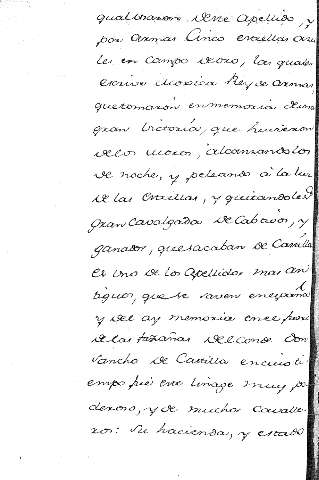 qualusaron deste Apellido, y
por armas Cinco estrellas azu
les en campo de oro, las quales
escrive Moxica Rey de armas,
que tomaron en memoria de una
gran Victoria, que huvieron
de los moros, alcanzandolos
de noche, y peleando à la luz
de las estrellas, y quitandoles
gran Cavalgada de Cabtivos, y
ganados, que sacaban de Castilla
es uno de los Apellidos mas an
tiguos, que se saven en españa
y del ay memoria en el
de las hazañas del conde Don
Sancho de Castilla en cuio ti
empo fué este linage muy po
deroso, y de muchos cavalle
ros: su hacienda, y estado